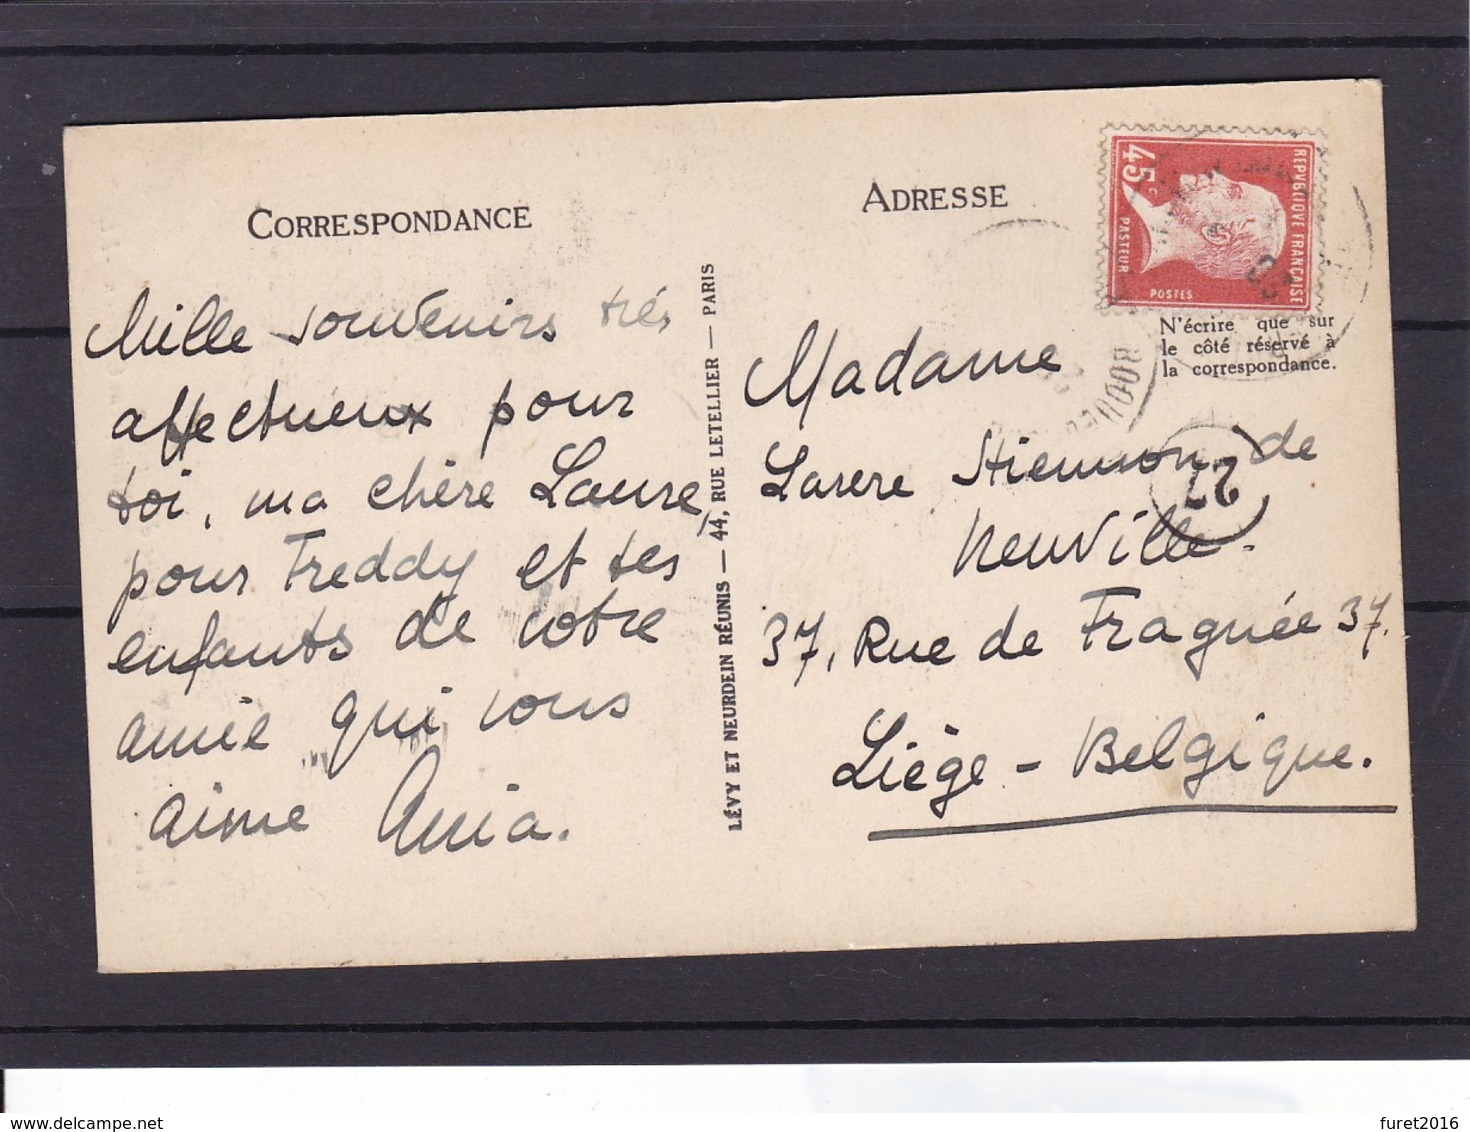 CORRESPONDANCE
Mille souvenirs très
affectueux pour
toi, ma chère Laure,
pour Freddy et tes
enfants de votre
amie qui vous
aime Ania.
LÉVY ET NEURDEIN RÉUNIS — 44, RUE LETELLIER — PARIS
ADRESSE
RÉPVBLIQVE FRANÇAISE
45c
PASTEUR
POSTES
N'écrire que sur
le côté réservé à
la correspondance.
27
Madame
Stiennon de
Neuville.
37, Rue de Fragnée 37.
Liège - Belgique.
© delcampe.net
furet2016